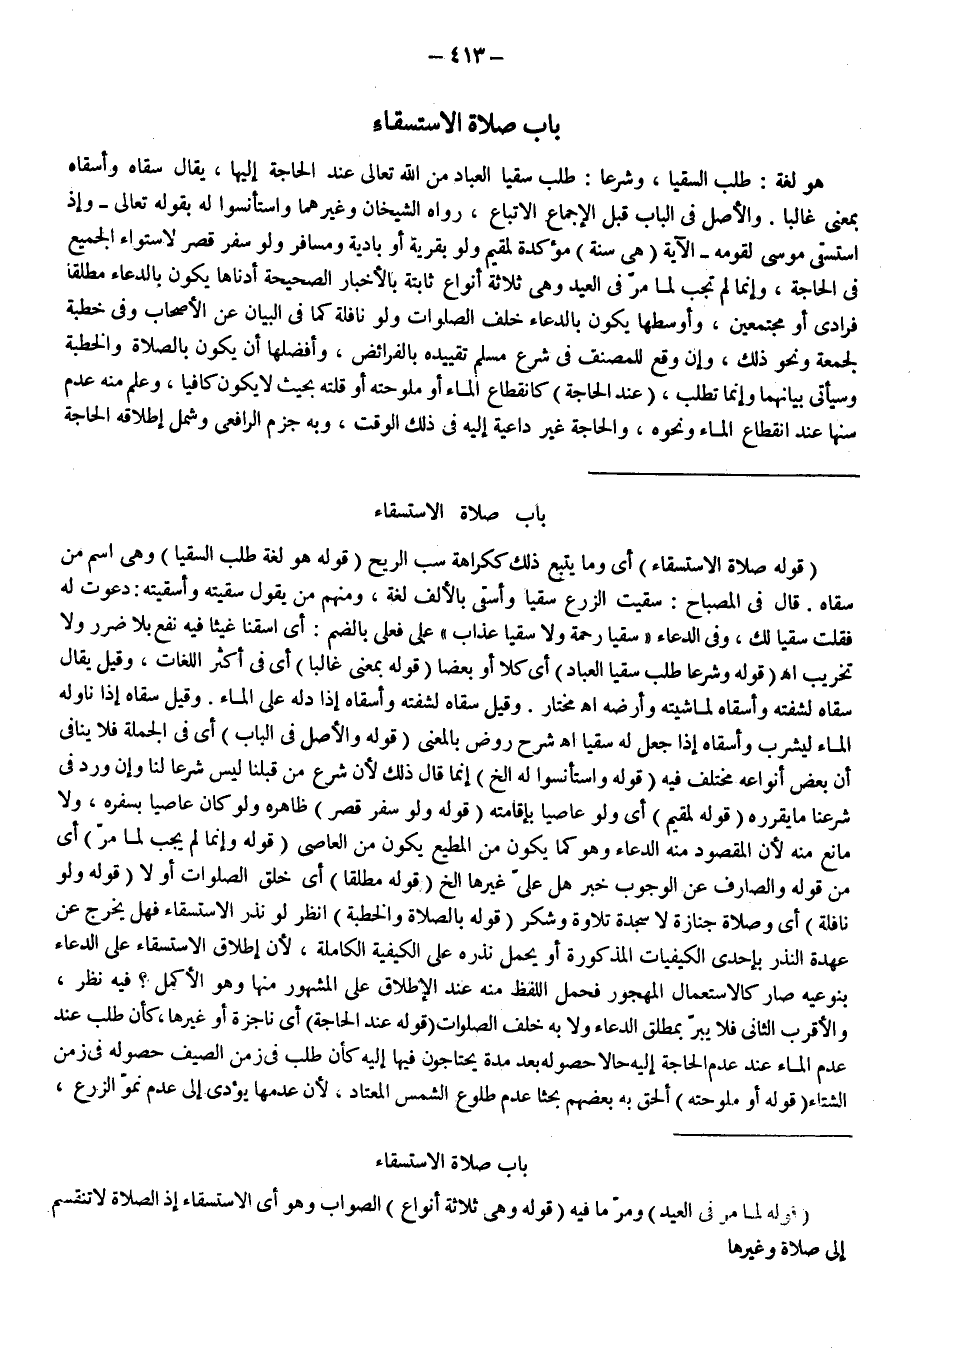 - ٤١٣ -
باب صلاة الاستسقاء
هو لغة : طلب السقيا ، وشرعا : طلب سقيا العباد من الله تعالى عند الحاجة إليها ، يقال سقاه وأسقاه
بمعنى غالبا . والأصل فى الباب قبل الإجماع الاتباع ، رواه الشيخان وغيرهما واستأنسوا له بقوله تعالى - وإذ
استسقى موسى لقومه - الآية ( هى سنة ) مؤكدة لمقيم ولو بقرية أو بادية ومسافر ولو سفر قصر لاستواء الجميع
فى الحاجة ، وإنما لم تجب لما مرّ فى العيد وهى ثلاثة أنواع ثابتة بالأخبار الصحيحة أدناها يكون بالدعاء مطلقا
فرادى أو مجتمعين ، وأوسطها يكون بالدعاء خلف الصلوات ولو نافلة كما فى البيان عن الأصحاب وفى خطبة
لجمعة ونحو ذلك ، وإن وقع للمصنف فى شرع مسلم تقييده بالفرائض ، وأفضلها أن يكون بالصلاة والخطبة
وسيأتى بيانهما وإنما تطلب ، ( عند الحاجة ) كانقطاع الماء أو ملوحته أو قلته بحيث لايكون كافيا ، وعلم منه عدم
سنها عند انقطاع الماء ونحوه ، والحاجة غير داعية إليه فى ذلك الوقت ، وبه جزم الرافعى وشمل إطلاقه الحاجة
باب صلاة الاستسقاء
( قوله صلاة الاستسقاء ) أى وما يتبع ذلك ككراهة سب الريح ( قوله هو لغة طلب السقيا ) وهى اسم من
سقاه . قال فى المصباح : سقيت الزرع سقيا وأسقى بالألف لغة ، ومنهم من يقول سقيته وأسقيته : دعوت له
فقلت سقيا لك ، وفى الدعاء « سقيا رحمة ولا سقيا عذاب » على فعلى بالضم : أى اسقنا غيثا فيه نفع بلا ضرر ولا
تخريب اه ( قوله وشرعا طلب سقيا العباد ) أى كلا أو بعضا ( قوله بمعنى غالبا ) أى فى أكثر اللغات ، وقيل يقال
سقاه لشفته وأسقاه لماشيته وأرضه اه مختار . وقيل سقاه لشفته وأسقاه إذا دله على الماء . وقيل سقاه إذا ناوله
الماء ليشرب وأسقاه إذا جعل له سقيا اه شرح روض بالمعنى ( قوله والأصل فى الباب ) أى فى الجملة فلا ينافى
أن بعض أنواعه مختلف فيه ( قوله واستأنسوا له الخ ) إنما قال ذلك لأن شرع من قبلنا ليس شرعا لنا وإن ورد فى
شرعنا مايقرره ( قوله لمقيم ) أى ولو عاصيا بإقامته ( قوله ولو سفر قصر ) ظاهره ولو كان عاصيا بسفره ، ولا
مانع منه لأن المقصود منه الدعاء وهو كما يكون من المطيع يكون من العاصى ( قوله وإنما لم يجب لما مرّ ) أى
من قوله والصارف عن الوجوب خبر هل علىّ غيرها الخ ( قوله مطلقا ) أى خلق الصلوات أو لا ( قوله ولو
نافلة ) أى وصلاة جنازة لا سجدة تلاوة وشكر ( قوله بالصلاة والخطبة ) انظر لو نذر الاستسقاء فهل يخرج عن
عهدة النذر بإحدى الكيفيات المذكورة أو يحمل نذره على الكيفية الكاملة ، لأن إطلاق الاستسقاء على الدعاء
بنوعيه صار كالاستعمال المهجور فحمل اللفظ منه عند الإطلاق على المشهور منها وهو الأكمل ؟ فيه نظر ،
والأقرب الثانى فلا يبرّ بمطلق الدعاء ولا به خلف الصلوات (قوله عند الحاجة) أى ناجزة أو غيرها ، كأن طلب عند
عدم الماء عند عدم الحاجة إليه حالا حصوله بعد مدة يحتاجون فيها إليه كأن طلب فى زمن الصيف حصوله فى زمن
الشتاء ( قوله أو ملوحته ) ألحق به بعضهم بحثا عدم طلوع الشمس المعتاد ، لأن عدمها يؤدى إلى عدم نموّ الزرع ،
باب صلاة الاستسقاء
( قوله لما مر فى العيد ) ومرّ ما فيه ( قوله وهى ثلاثة أنواع ) الصواب وهو أى الاستسقاء إذ الصلاة لاتنقسم
إلى صلاة وغيرها